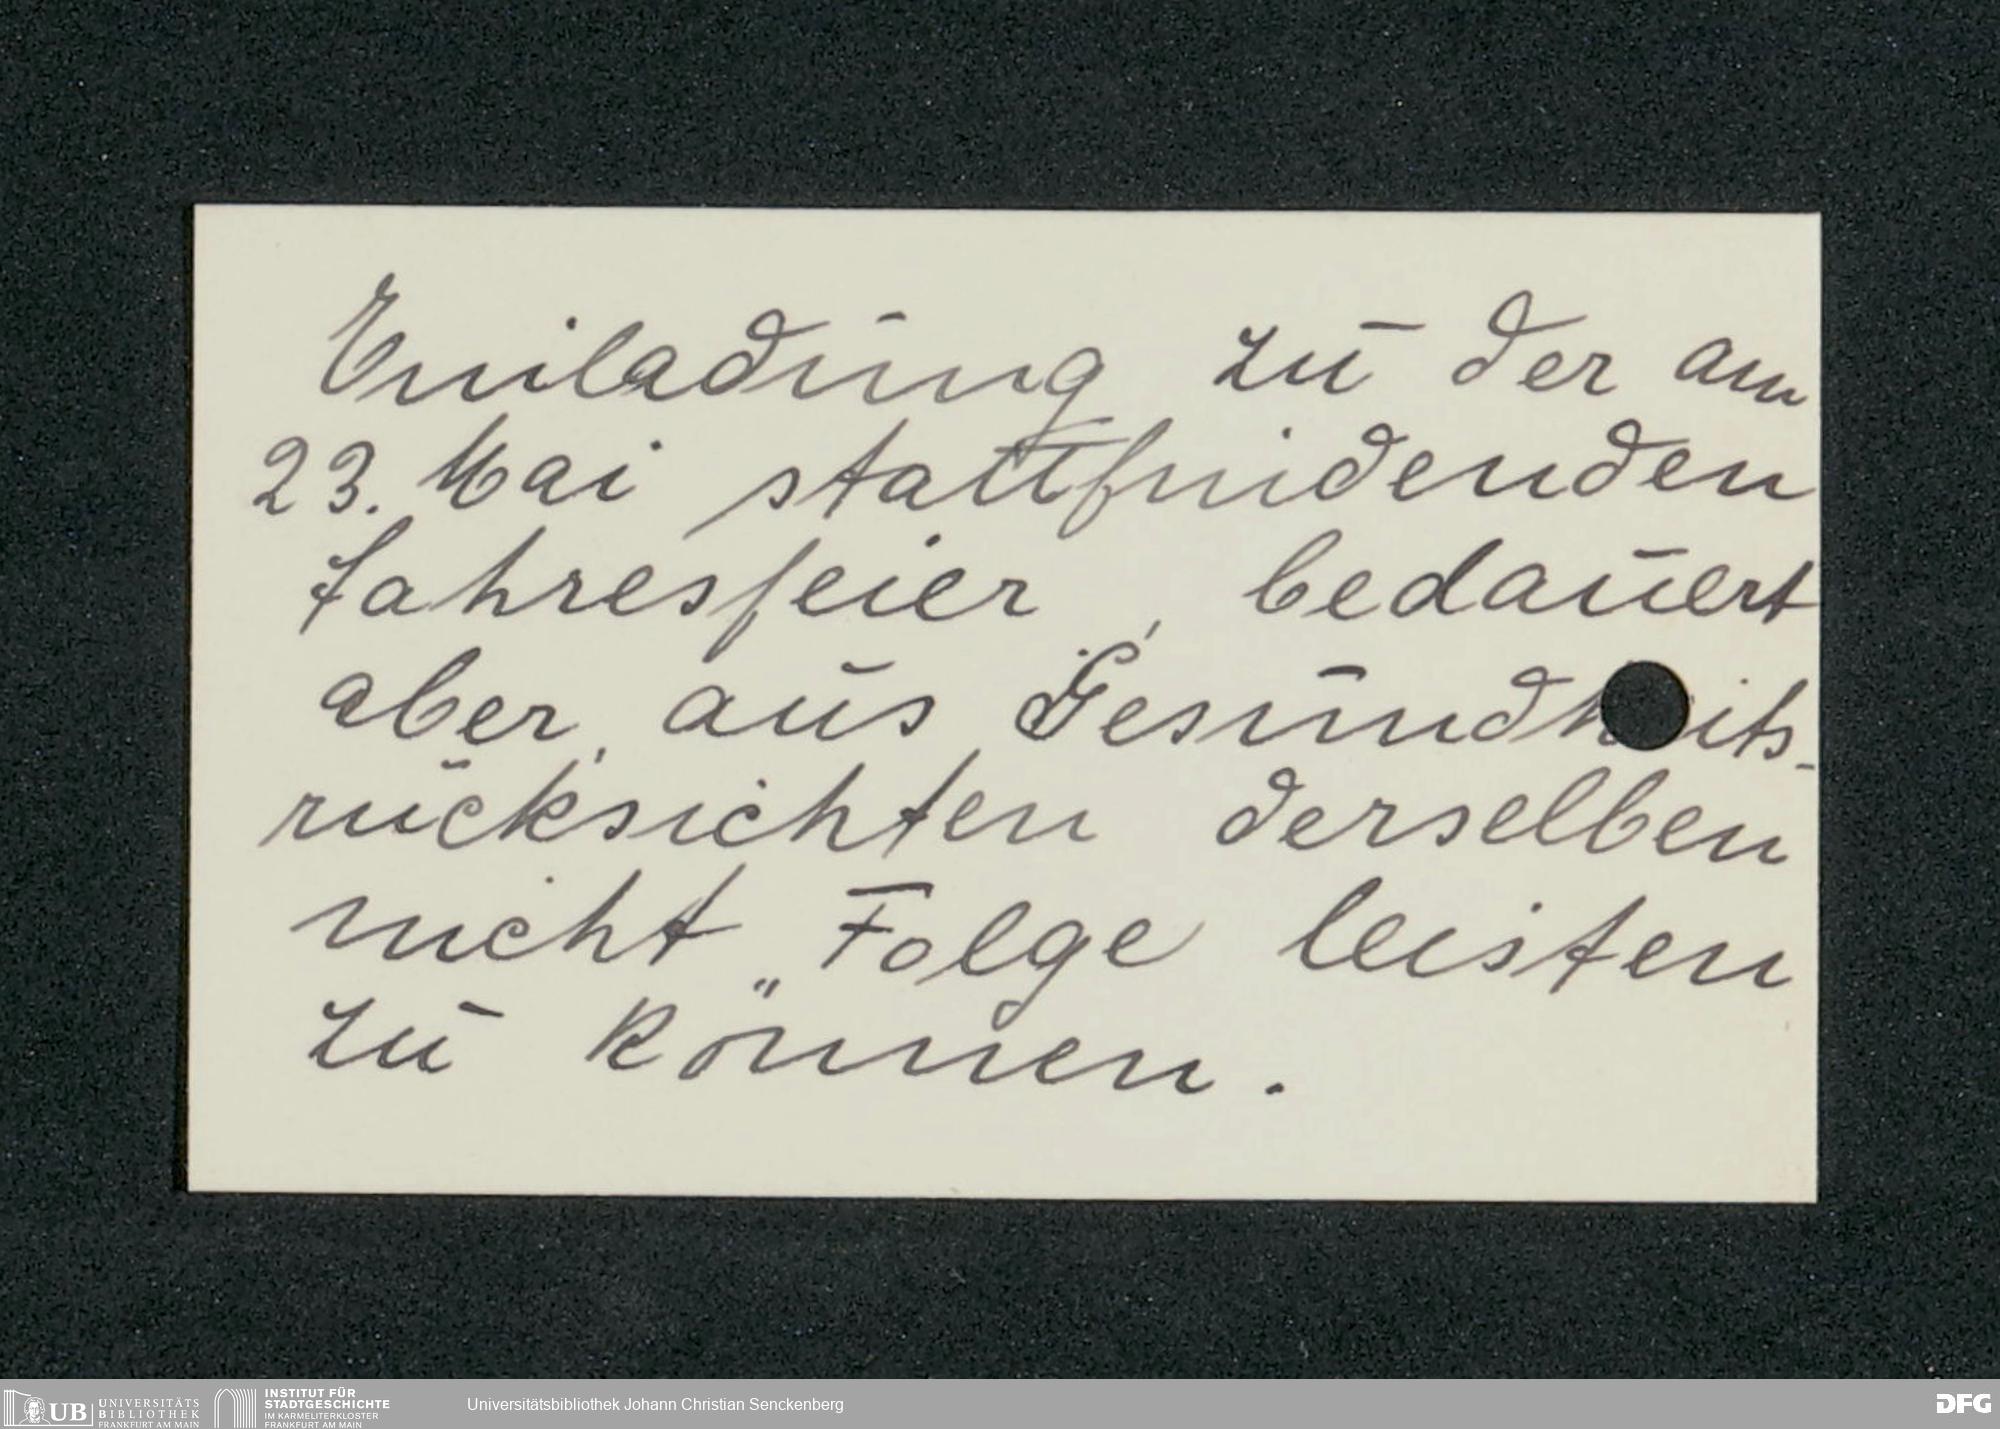 Einladung zu der am
23. Mai stattfindenden
Jahresfeier, bedauert
aber, aus Gesundheits-
rücksichten derselben
nicht Folge leisten
zu können.
UB UNIVERSITÄTS
BIBLIOTHEK
FRANKFURT AM MAIN
INSTITUT FÜR
STADTGESCHICHTE
IM KARMELITERKLOSTER
FRANKFURT AM MAIN
Universitätsbibliothek Johann Christian Senckenberg
DFG